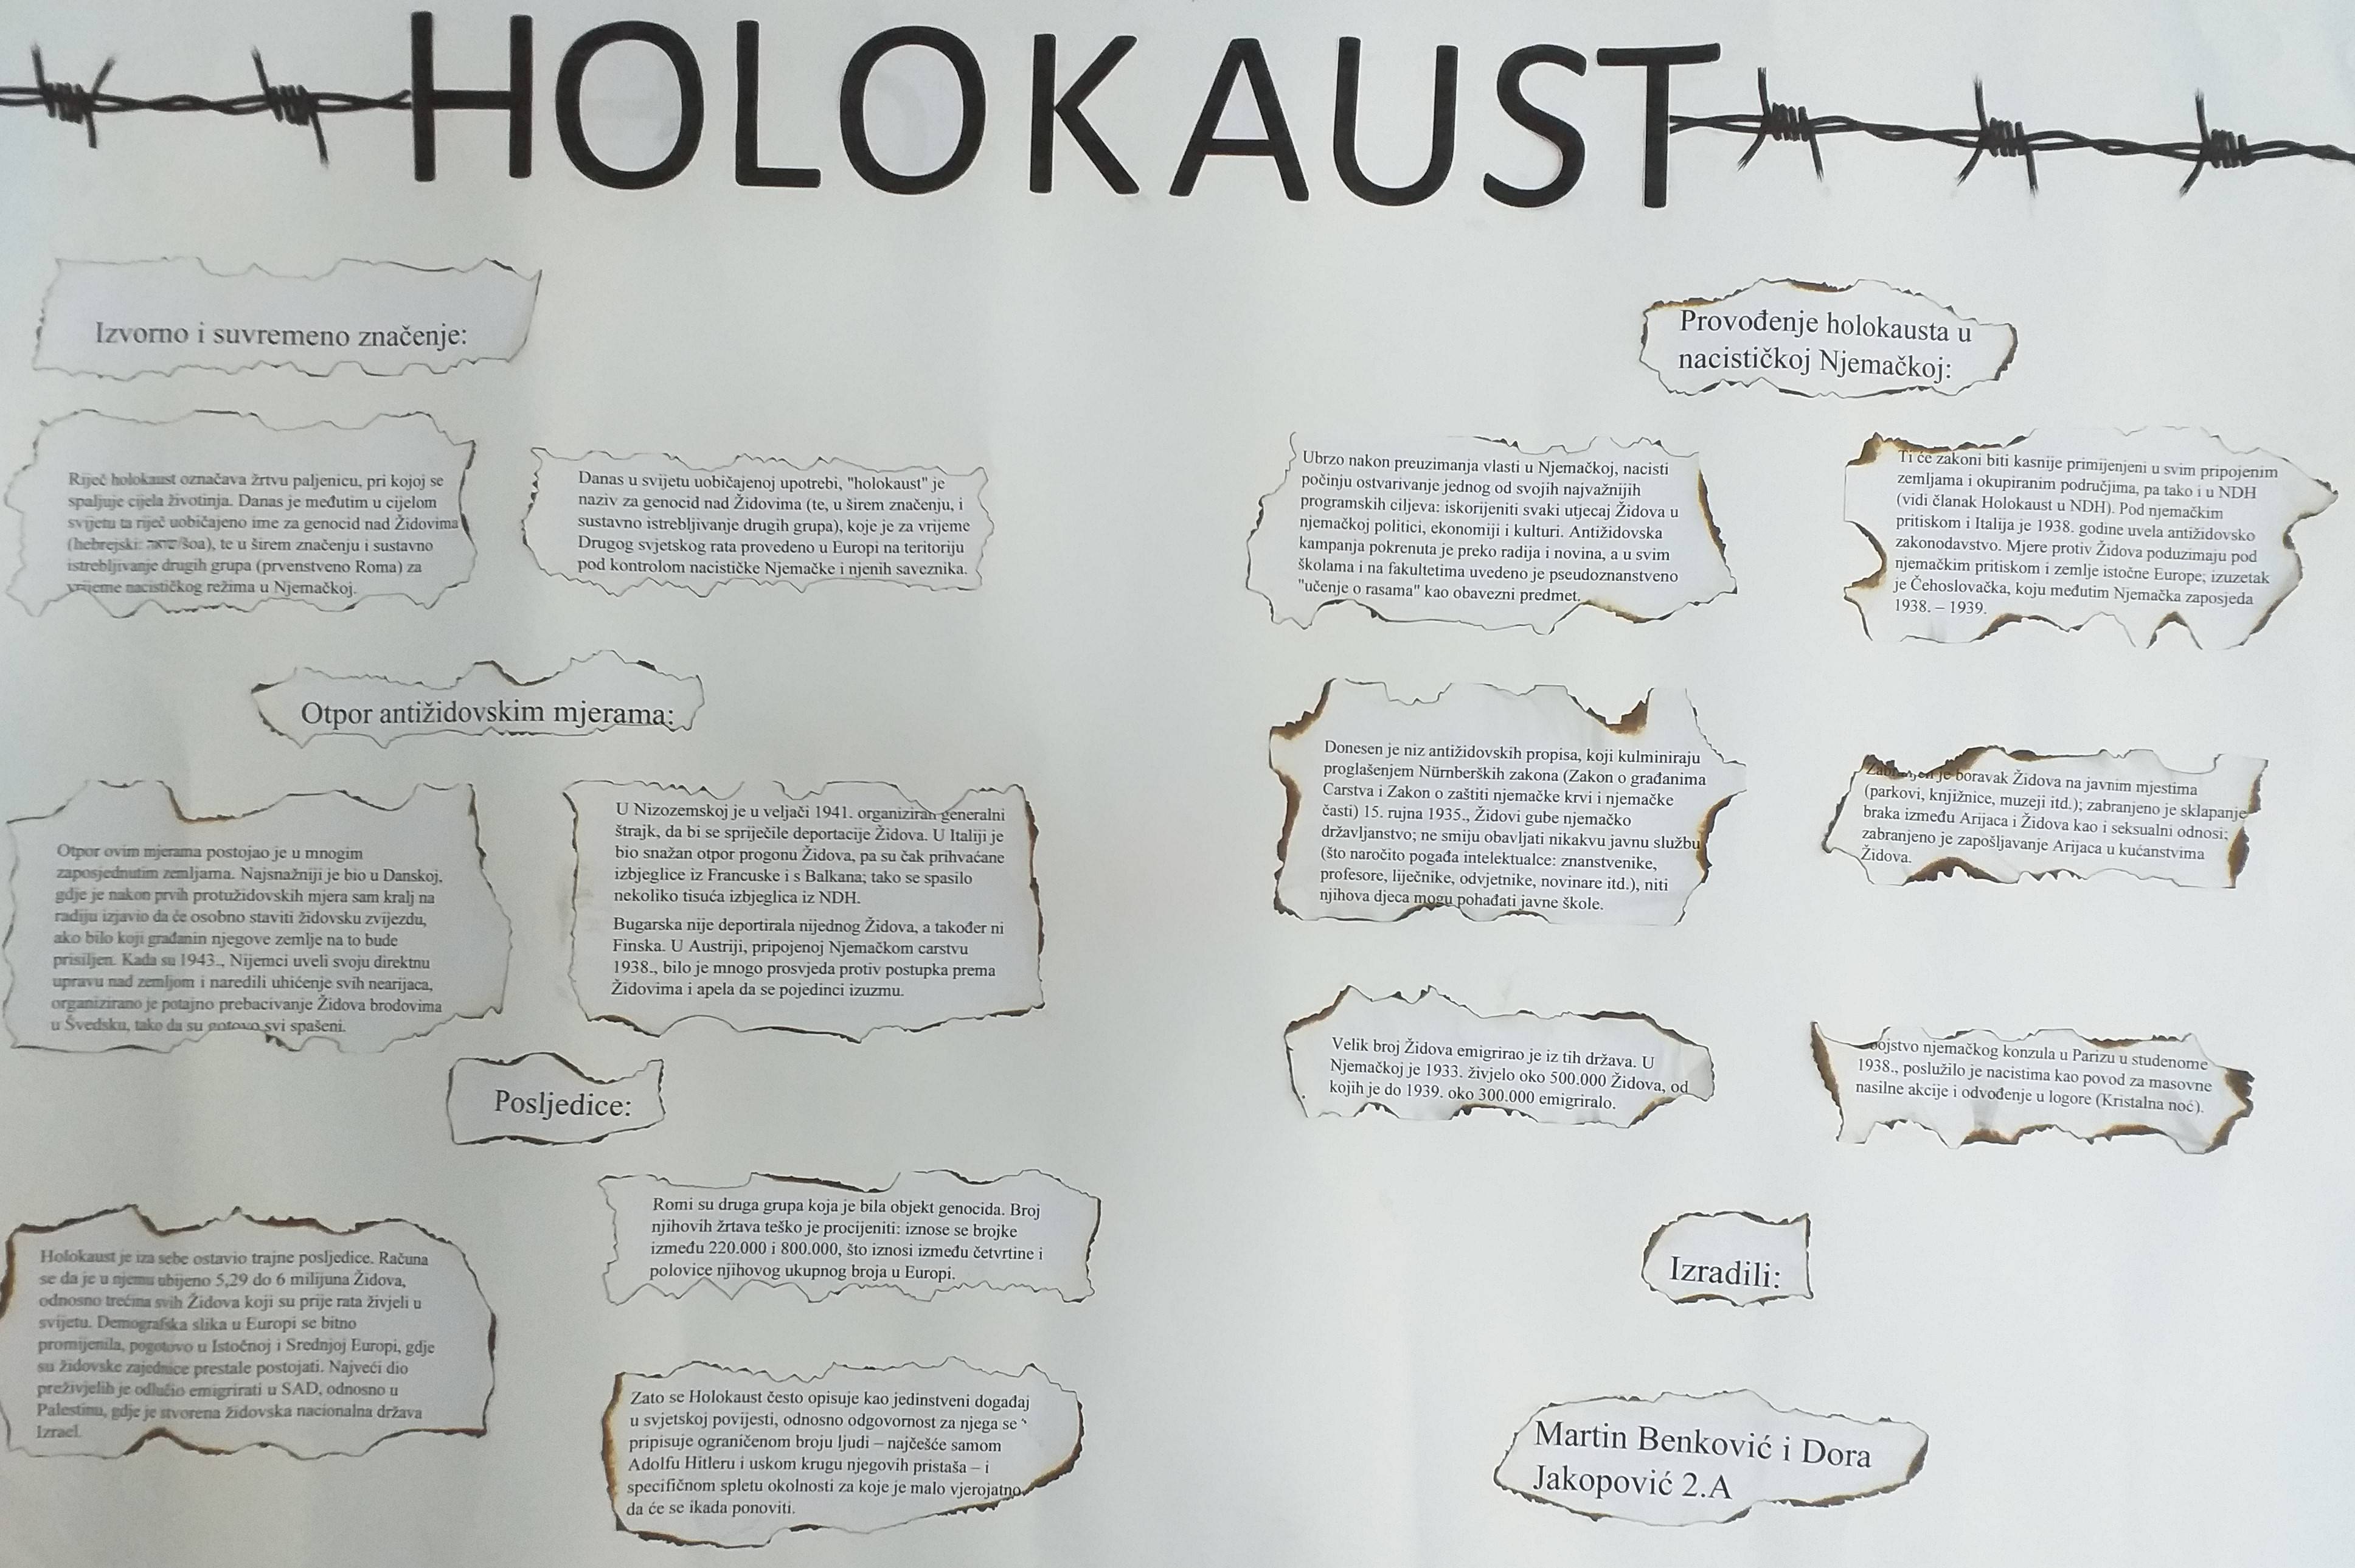 HOLOKAUST
Izvorno i suvremeno značenje:
Riječ holokaust označava žrtvu paljenicu, pri kojoj se
spaljuje cijela životinja. Danas je međutim u cijelom
svijetu ta riječ uobičajeno ime za genocid nad Židovima
(hebrejski: /šoa), te u širem značenju i sustavno
istrebljivanje drugih grupa (prvenstveno Roma) za
vrijeme nacističkog režima u Njemačkoj.
Danas u svijetu uobičajenoj upotrebi, "holokaust" je
naziv za genocid nad Židovima (te, u širem značenju, i
sustavno istrebljivanje drugih grupa), koje je za vrijeme
Drugog svjetskog rata provedeno u Europi na teritoriju
pod kontrolom nacističke Njemačke i njenih saveznika.
Otpor antižidovskim mjerama:
Otpor ovim mjerama postojao je u mnogim
zaposjednutim zemljama. Najsnažniji je bio u Danskoj,
gdje je nakon prvih protužidovskih mjera sam kralj na
radiju izjavio da će osobno staviti židovsku zvijezdu,
ako bilo koji građanin njegove zemlje na to bude
prisiljen. Kada su 1943., Nijemci uveli svoju direktnu
upravu nad zemljom i naredili uhićenje svih nearijaca,
organizirano je potajno prebacivanje Židova brodovima
u Švedsku, tako da su gotovo svi spašeni.
U Nizozemskoj je u veljači 1941. organiziran generalni
štrajk, da bi se spriječile deportacije Židova. U Italiji je
bio snažan otpor progonu Židova, pa su čak prihvaćane
izbjeglice iz Francuske i s Balkana; tako se spasilo
nekoliko tisuća izbjeglica iz NDH.
Bugarska nije deportirala nijednog Židova, a također ni
Finska. U Austriji, pripojenoj Njemačkom carstvu
1938., bilo je mnogo prosvjeda protiv postupka prema
Židovima i apela da se pojedinci izuzmu.
Posljedice:
Holokaust je iza sebe ostavio trajne posljedice. Računa
se da je u njemu ubijeno 5,29 do 6 milijuna Židova,
odnosno trećina svih Židova koji su prije rata živjeli u
svijetu. Demografska slika u Europi se bitno
promijenila, pogotovo u Istočnoj i Srednjoj Europi, gdje
su židovske zajednice prestale postojati. Najveći dio
preživjelih je odlučio emigrirati u SAD, odnosno u
Palestinu, gdje je stvorena židovska nacionalna država
Izrael.
Romi su druga grupa koja je bila objekt genocida. Broj
njihovih žrtava teško je procijeniti: iznose se brojke
između 220.000 i 800.000, što iznosi između četvrtine i
polovice njihovog ukupnog broja u Europi.
Zato se Holokaust često opisuje kao jedinstveni događaj
u svjetskoj povijesti, odnosno odgovornost za njega se
pripisuje ograničenom broju ljudi – najčešće samom
Adolfu Hitleru i uskom krugu njegovih pristaša – i
specifičnom spletu okolnosti za koje je malo vjerojatno
da će se ikada ponoviti.
Provođenje holokausta u
nacističkoj Njemačkoj:
Ubrzo nakon preuzimanja vlasti u Njemačkoj, nacisti
počinju ostvarivanje jednog od svojih najvažnijih
programskih ciljeva: iskorijeniti svaki utjecaj Židova u
njemačkoj politici, ekonomiji i kulturi. Antižidovska
kampanja pokrenuta je preko radija i novina, a u svim
školama i na fakultetima uvedeno je pseudoznanstveno
"učenje o rasama" kao obavezni predmet.
Ti će zakoni biti kasnije primijenjeni u svim pripojenim
zemljama i okupiranim područjima, pa tako i u NDH
(vidi članak Holokaust u NDH). Pod njemačkim
pritiskom i Italija je 1938. godine uvela antižidovsko
zakonodavstvo. Mjere protiv Židova poduzimaju pod
njemačkim pritiskom i zemlje istočne Europe; izuzetak
je Čehoslovačka, koju međutim Njemačka zaposjeda
1938. – 1939.
Donesen je niz antižidovskih propisa, koji kulminiraju
proglašenjem Nürnberških zakona (Zakon o građanima
Carstva i Zakon o zaštiti njemačke krvi i njemačke
časti) 15. rujna 1935., Židovi gube njemačko
državljanstvo; ne smiju obavljati nikakvu javnu službu
(što naročito pogađa intelektualce: znanstvenike,
profesore, liječnike, odvjetnike, novinare itd.), niti
njihova djeca mogu pohađati javne škole.
Zabranjen je boravak Židova na javnim mjestima
(parkovi, knjižnice, muzeji itd.); zabranjeno je sklapanje
braka između Arijaca i Židova kao i seksualni odnosi;
zabranjeno je zapošljavanje Arijaca u kućanstvima
Židova.
Velik broj Židova emigrirao je iz tih država. U
Njemačkoj je 1933. živjelo oko 500.000 Židova, od
kojih je do 1939. oko 300.000 emigriralo.
njemačkog konzula u Parizu u studenome
1938., poslužilo je nacistima kao povod za masovne
nasilne akcije i odvođenje u logore (Kristalna noć).
Izradili:
Martin Benković i Dora
Jakopović 2.A